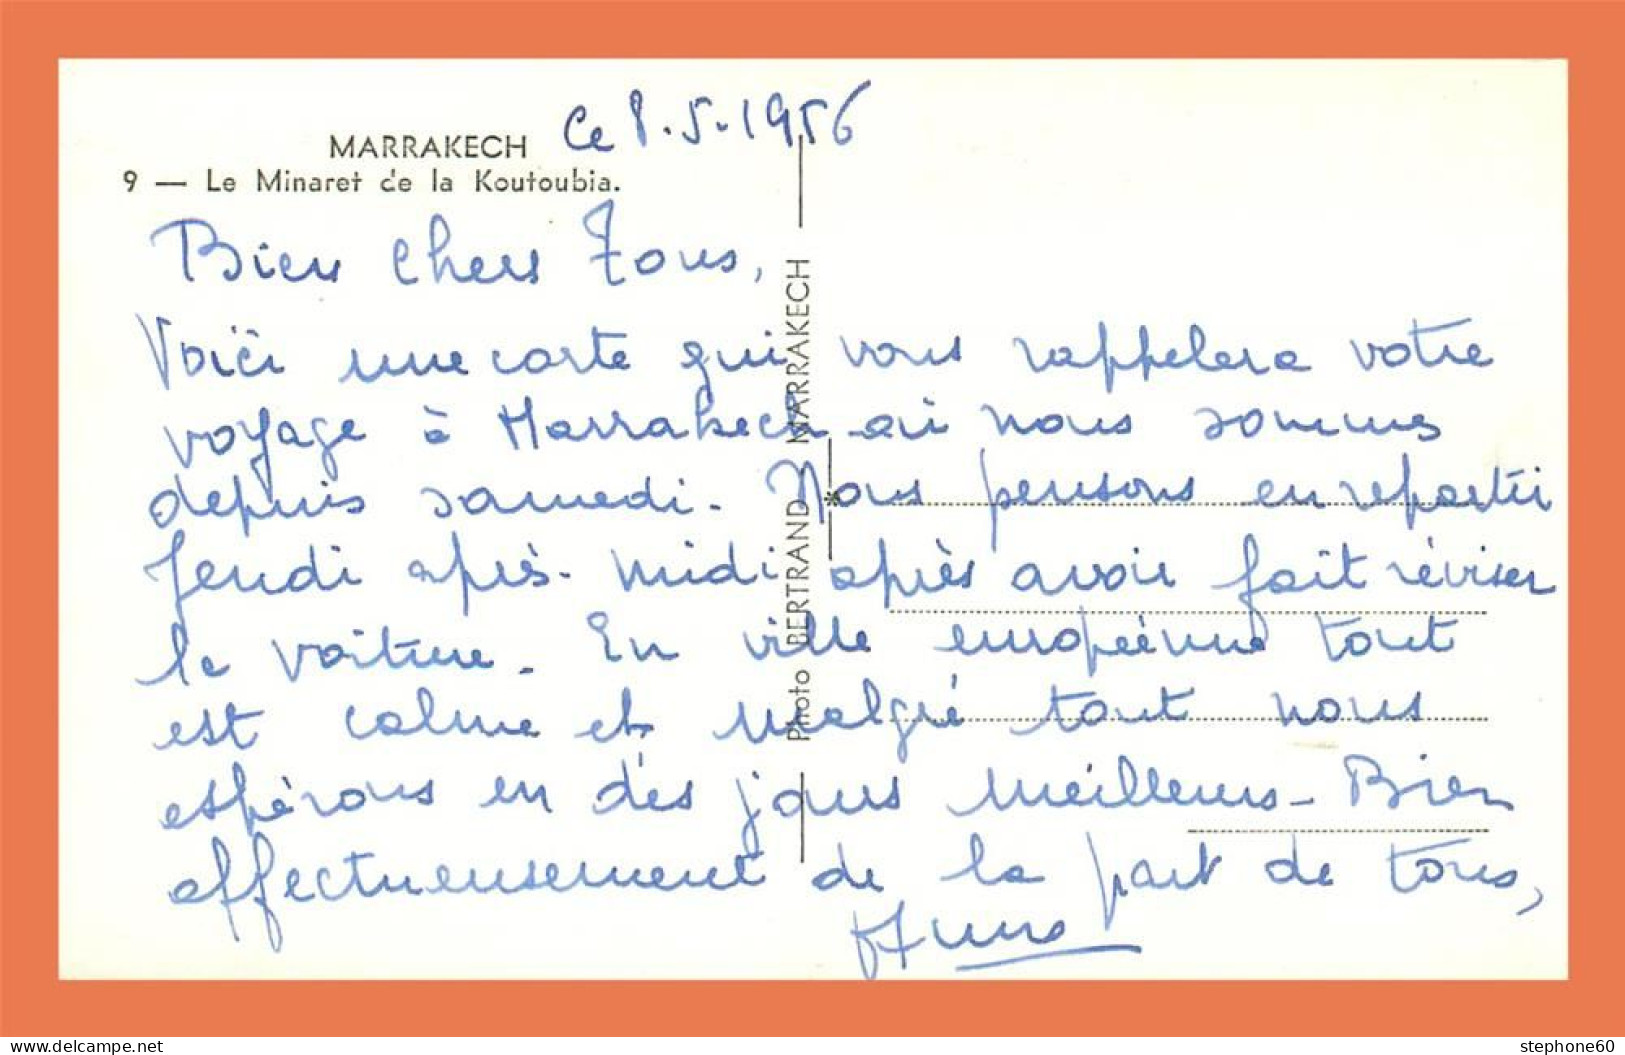 MARRAKECH
9 — Le Minaret de la Koutoubia.
Ce 8.5.1956
Bien chers Tous,
Voici une carte qui vous rappelera votre
voyage à Marrakech où nous sommes
depuis samedi. Nous pensons en repartir
Jeudi après-midi après avoir fait réviser
la voiture. En ville européenne tout
est calme et malgré tout nous
espérons en des jours meilleurs - Bien
affectueusement de la part de tous,
Photo BERTRAND MARRAKECH
delcampe.net
stephone60